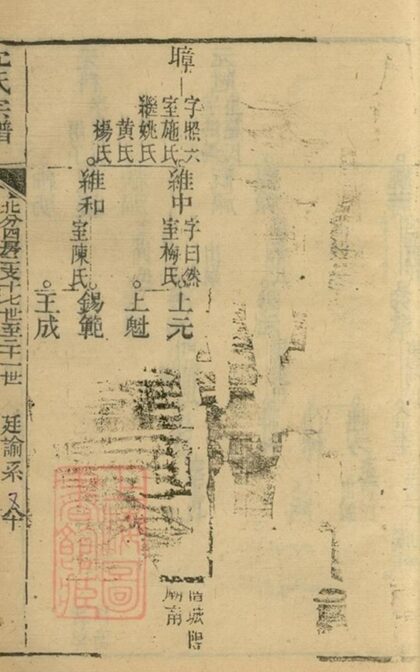 暲
字照六
室施氏
繼姚氏
黄氏
楊氏
維中
字曰然
室梅氏
維和
室陳氏
上元
上魁
錫範
王成
城隍
廟南
氏宗譜
北分四房三支十七世至二十一世
廷諭系
上海圖書館藏